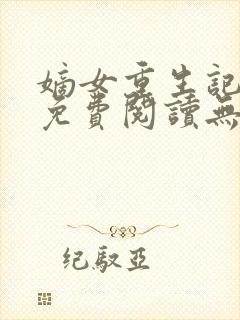 嫡女重生記
免費閱讀無
纪馭亞